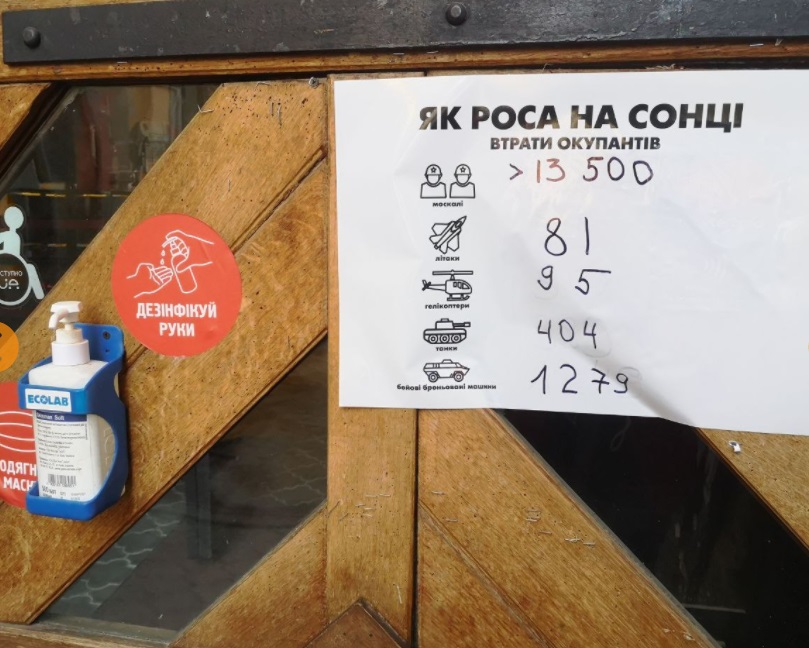 ЯК РОСА НА СОНЦІ
ВТРАТИ ОКУПАНТІВ
> 13 500
москалі
81
літаки
95
гелікоптери
404
танки
1279
бойові броньовані машини
ДЕЗІНФІКУЙ
РУКИ
ECOLAB